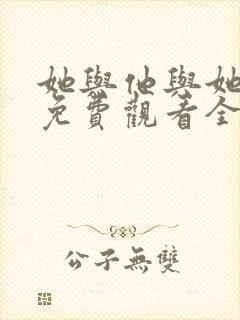 她與他與她
免費觀看全
公子無雙